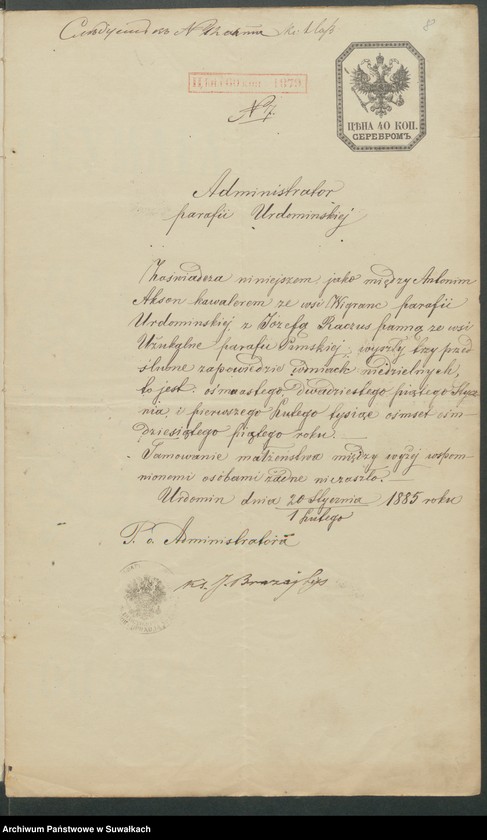 8
ЦѢНА 60 КОП. 1879
№ 7.
ЦѢНА 40 КОП.
СЕРЕБРОМЪ
Administrator
parafii Urdomińskiej
Zaświadcza niniejszem, jako między Antonim
Aksen kawalerem ze wsi Wigranc parafii
Urdominskiej z Józefą Raczus panną ze wsi
Użukalne parafii Simskiej, wyszły trzy przed
ślubne zapowiedzie w dniach niedzielnych,
to jest: ośmnastego, dwudziestego piątego Stycz-
nia i pierwszego Lutego tysiąc ośmset ośm-
dziesiątego piątego roku.
Tamowanie małżeństwa między wyżej wspom-
nionemi osobami żadne niezaszło.
Urdomin dnia 20 Stycznia 1885 roku
1 Lutego
P. o. Administratora
Ks. J.
Archiwum Państwowe w Suwałkach